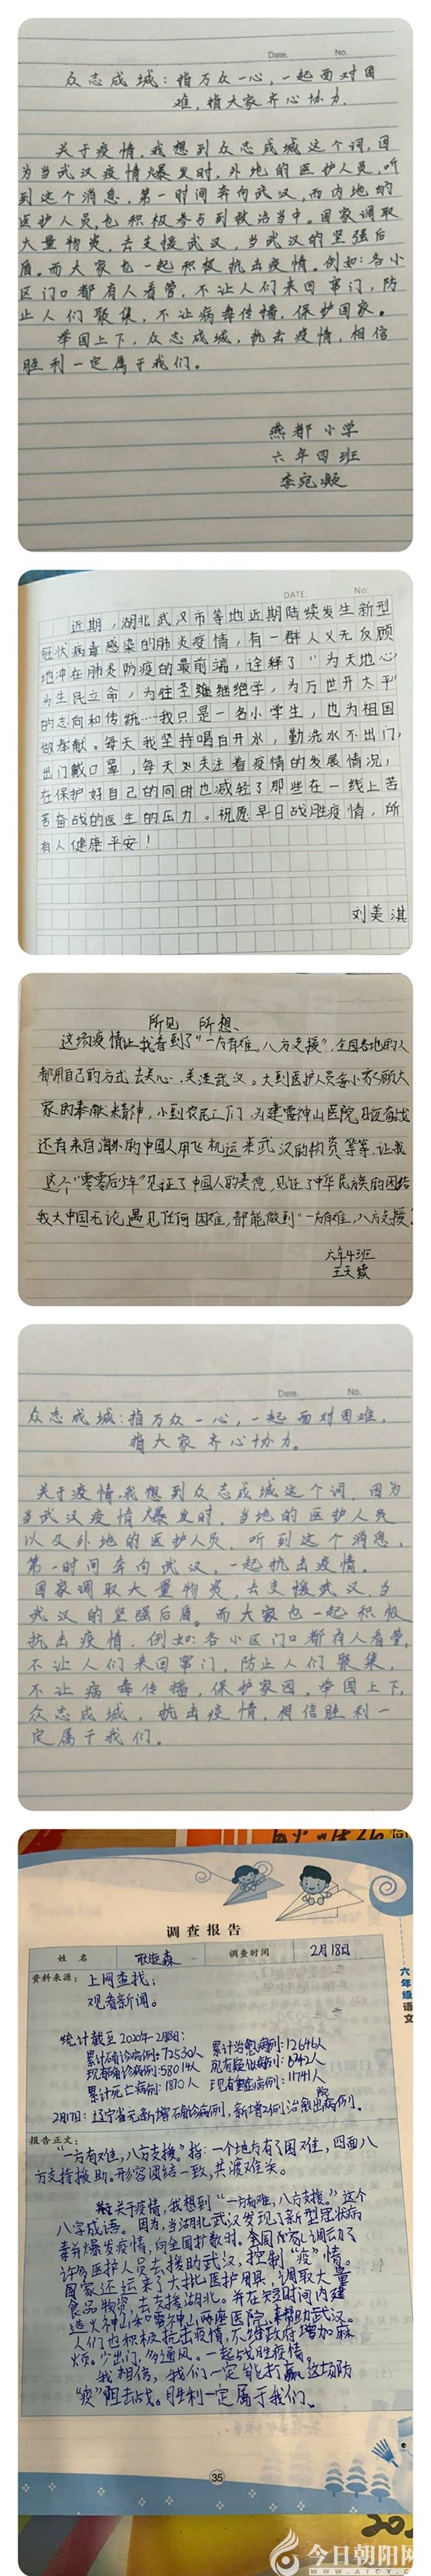 Date. No.
众志成城：指万众一心，一起面对困
难，指大家齐心协力。
关于疫情，我想到众志成城这个词，因
为当武汉疫情爆发时，外地的医护人员，听
到这个消息，第一时间奔向武汉，而内地的
医护人员，也积极参与到救治当中。国家调取
大量物资，去支援武汉，当武汉的坚强后
盾。而大家也一起积极抗击疫情。例如：各小
区门口都有人看管，不让人们来回串门，防
止人们聚集，不让病毒传播，保护国家。
举国上下，众志成城，抗击疫情，相信
胜利一定属于我们。
燕都小学
六年四班
李宛凝
DATE: No:
近期，湖北武汉市等地近期陆续发生新型
冠状病毒感染的肺炎疫情，有一群人义无反顾
地冲在肺炎防疫的最前端，诠释了"为天地心
为生民立命，为往圣继绝学，为万世开太平"
的志向和传统…我只是一名小学生，也为祖国
做奉献。每天我坚持喝白开水，勤洗水不出门，
出门戴口罩，每天对关注着疫情的发展情况，
在保护好自己的同时也减轻了那些在一线上苦
苦奋战的医生的压力。祝愿早日战胜疫情，所
有人健康平安！
刘美淇
所见 所想、
这场疫情让我看到了"一方有难，八方支援"，全国各地的人
都用自己的方式去关心、关注武汉。大到医护人员舍小家顾大
家的奉献精神，小到农民工们为建雷神山医院日夜奋战
还有来自海外的中国人用飞机运来武汉的物资等等，让我
这个"零零后少年"见证了中国人的美德，见证了中华民族的团结
我大中国无论遇见任何困难，都能做到"一方有难，八方支援"
六年4班
Date. No.
众志成城：指万众一心，一起面对困难，
指大家齐心协力。
关于疫情，我想到众志成城这个词，因为
当武汉疫情爆发时，当地的医护人员
以及外地的医护人员，听到这个消息，
第一时间奔向武汉，一起抗击疫情。
国家调取大量物资，去支援武汉，当
武汉的坚强后盾。而大家也一起积极
抗击疫情，例如：各小区门口都有人看管，
不让人们来回串门，防止人们聚集，
不让病毒传播，保护家园，举国上下，
众志成城，抗击疫情，相信胜利一
定属于我们。
调查报告
姓名 调查时间 2月18日
六年级语文
资料来源：上网查找；
观看新闻。
统计截至2020年2月18日：
累计确诊病例：72530人 累计治愈病例：12646人
现有确诊病例：58014人 现有疑似病例：6242人
累计死亡病例：1870人 现有重症病例：11741人
2月17日：辽宁省无新增确诊病例，新增2例治愈出院病例。
报告正文：
"一方有难，八方支援。"指：一个地方有了困难，四面八
方支持援助。形容团结一致，共渡难关。
关于疫情，我想到"一方有难，八方支援。"这个
八字成语。因为，当湖北武汉发现了新型冠状病
毒并爆发疫情，向全国扩散时。全国各处调动了
许多医护人员去援助武汉，控制"疫"情。
国家还运来了大批医护用具，调取大量
食品物资，去支援湖北。并在短时间内建
造火神山和雷神山两座医院，来帮助武汉。
人们也积极抗击疫情，不给政府增加麻
烦。少出门，多通风。一起战胜疫情。
我相信，我们一定能打赢这场防
"疫"阻击战。胜利一定属于我们。
35
今日朝阳网